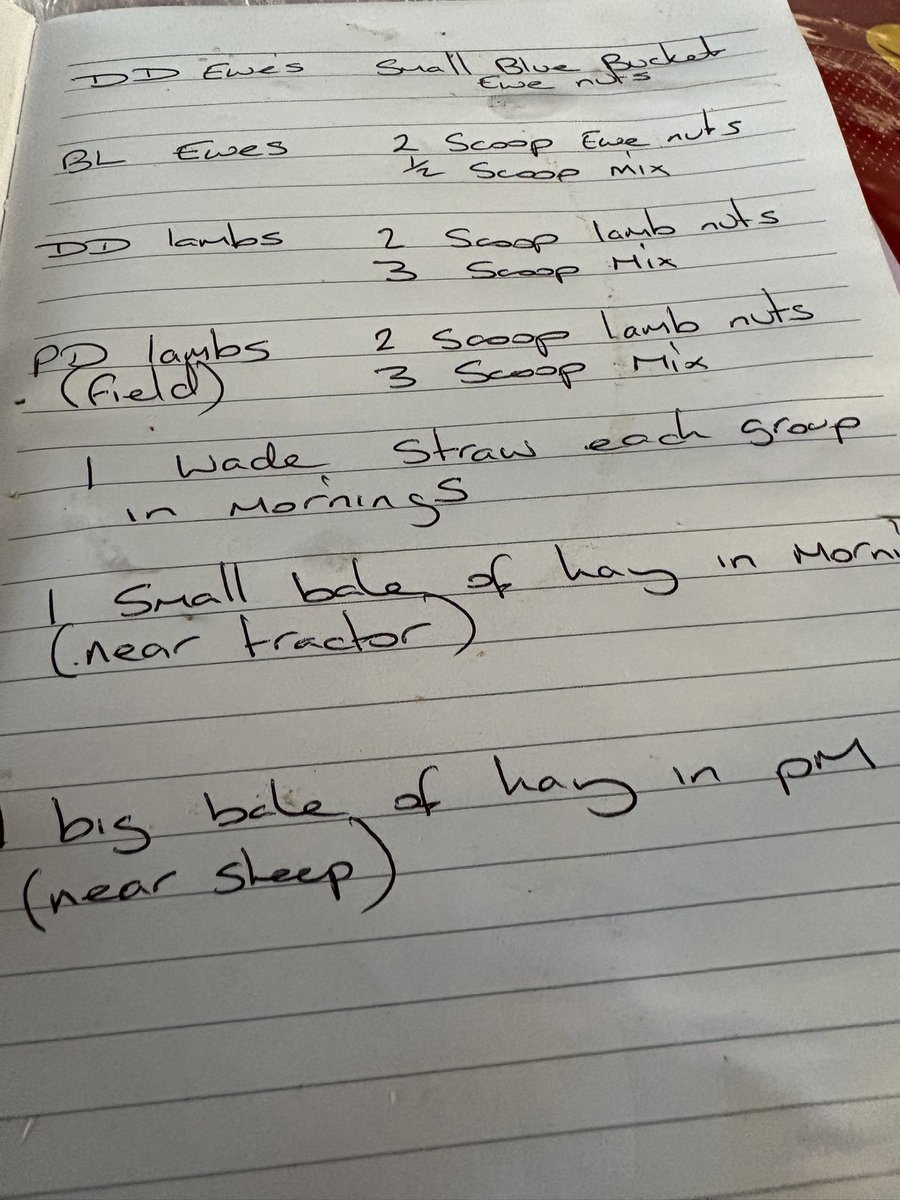 DD Ewes Small Blue Bucket
Ewe nuts
BL Ewes 2 Scoop Ewe nuts
1/2 Scoop mix
DD lambs 2 Scoop lamb nuts
3 Scoop Mix
PD lambs 2 Scoop lamb nuts
(field) 3 Scoop Mix
1 Wade Straw each group
in Mornings
1 Small bale of hay in Morni
(near tractor)
1 big bale of hay in pM
(near sheep)